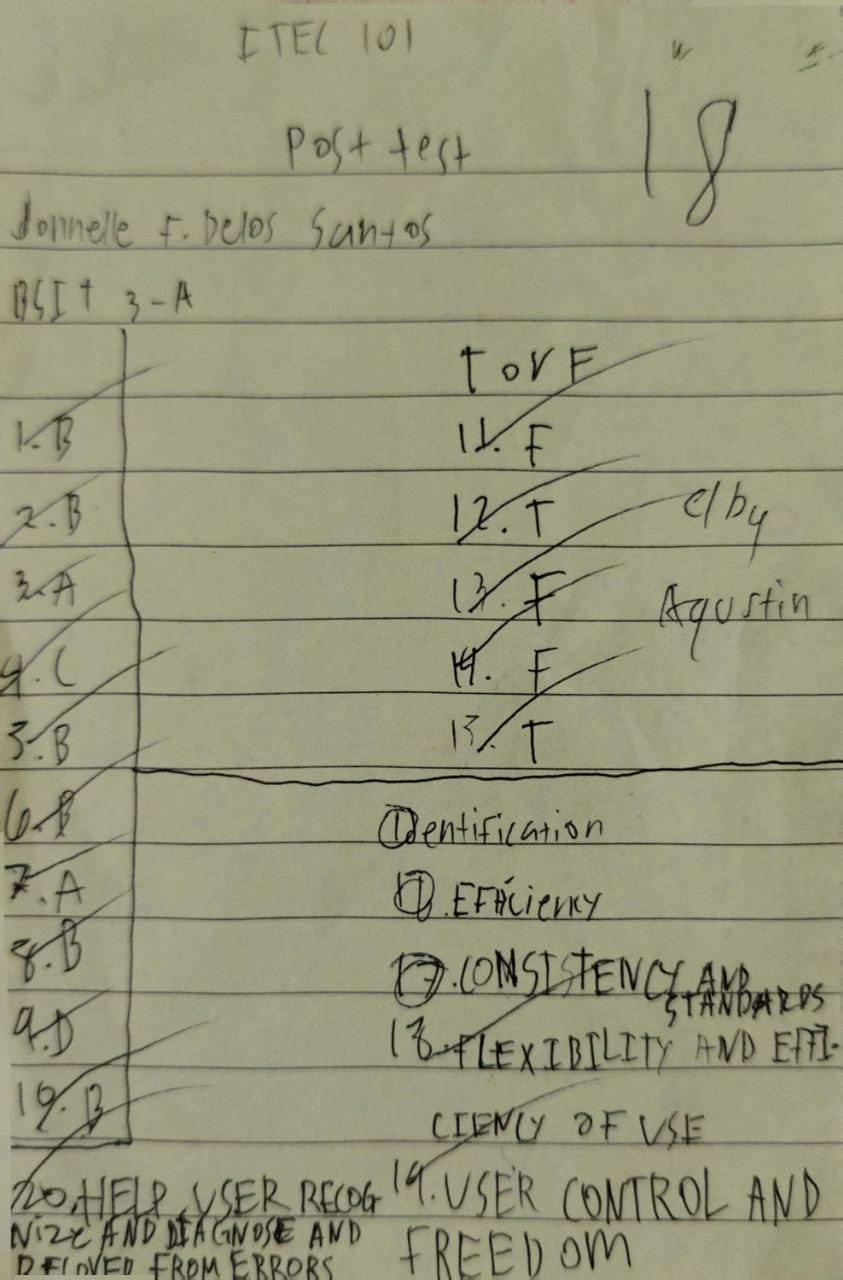 ITEC 101
Post test
18
Jonnelle F. Delos Santos
BSIT 3-A
1. B
2. B
3. A
4. C
5. B
6. B
7. A
8. B
9. D
10. B
T or F
11. F
12. T
13. F
14. F
15. T
c/by
Agustin
Identification
Efficiency
17. CONSISTENCY AND
STANDARDS
18. FLEXIBILITY AND EFFI-
CIENCY OF USE
19. USER CONTROL AND
FREEDOM
20. HELP USER RECOG
NIZE AND DIAGNOSE AND
FROM ERRORS